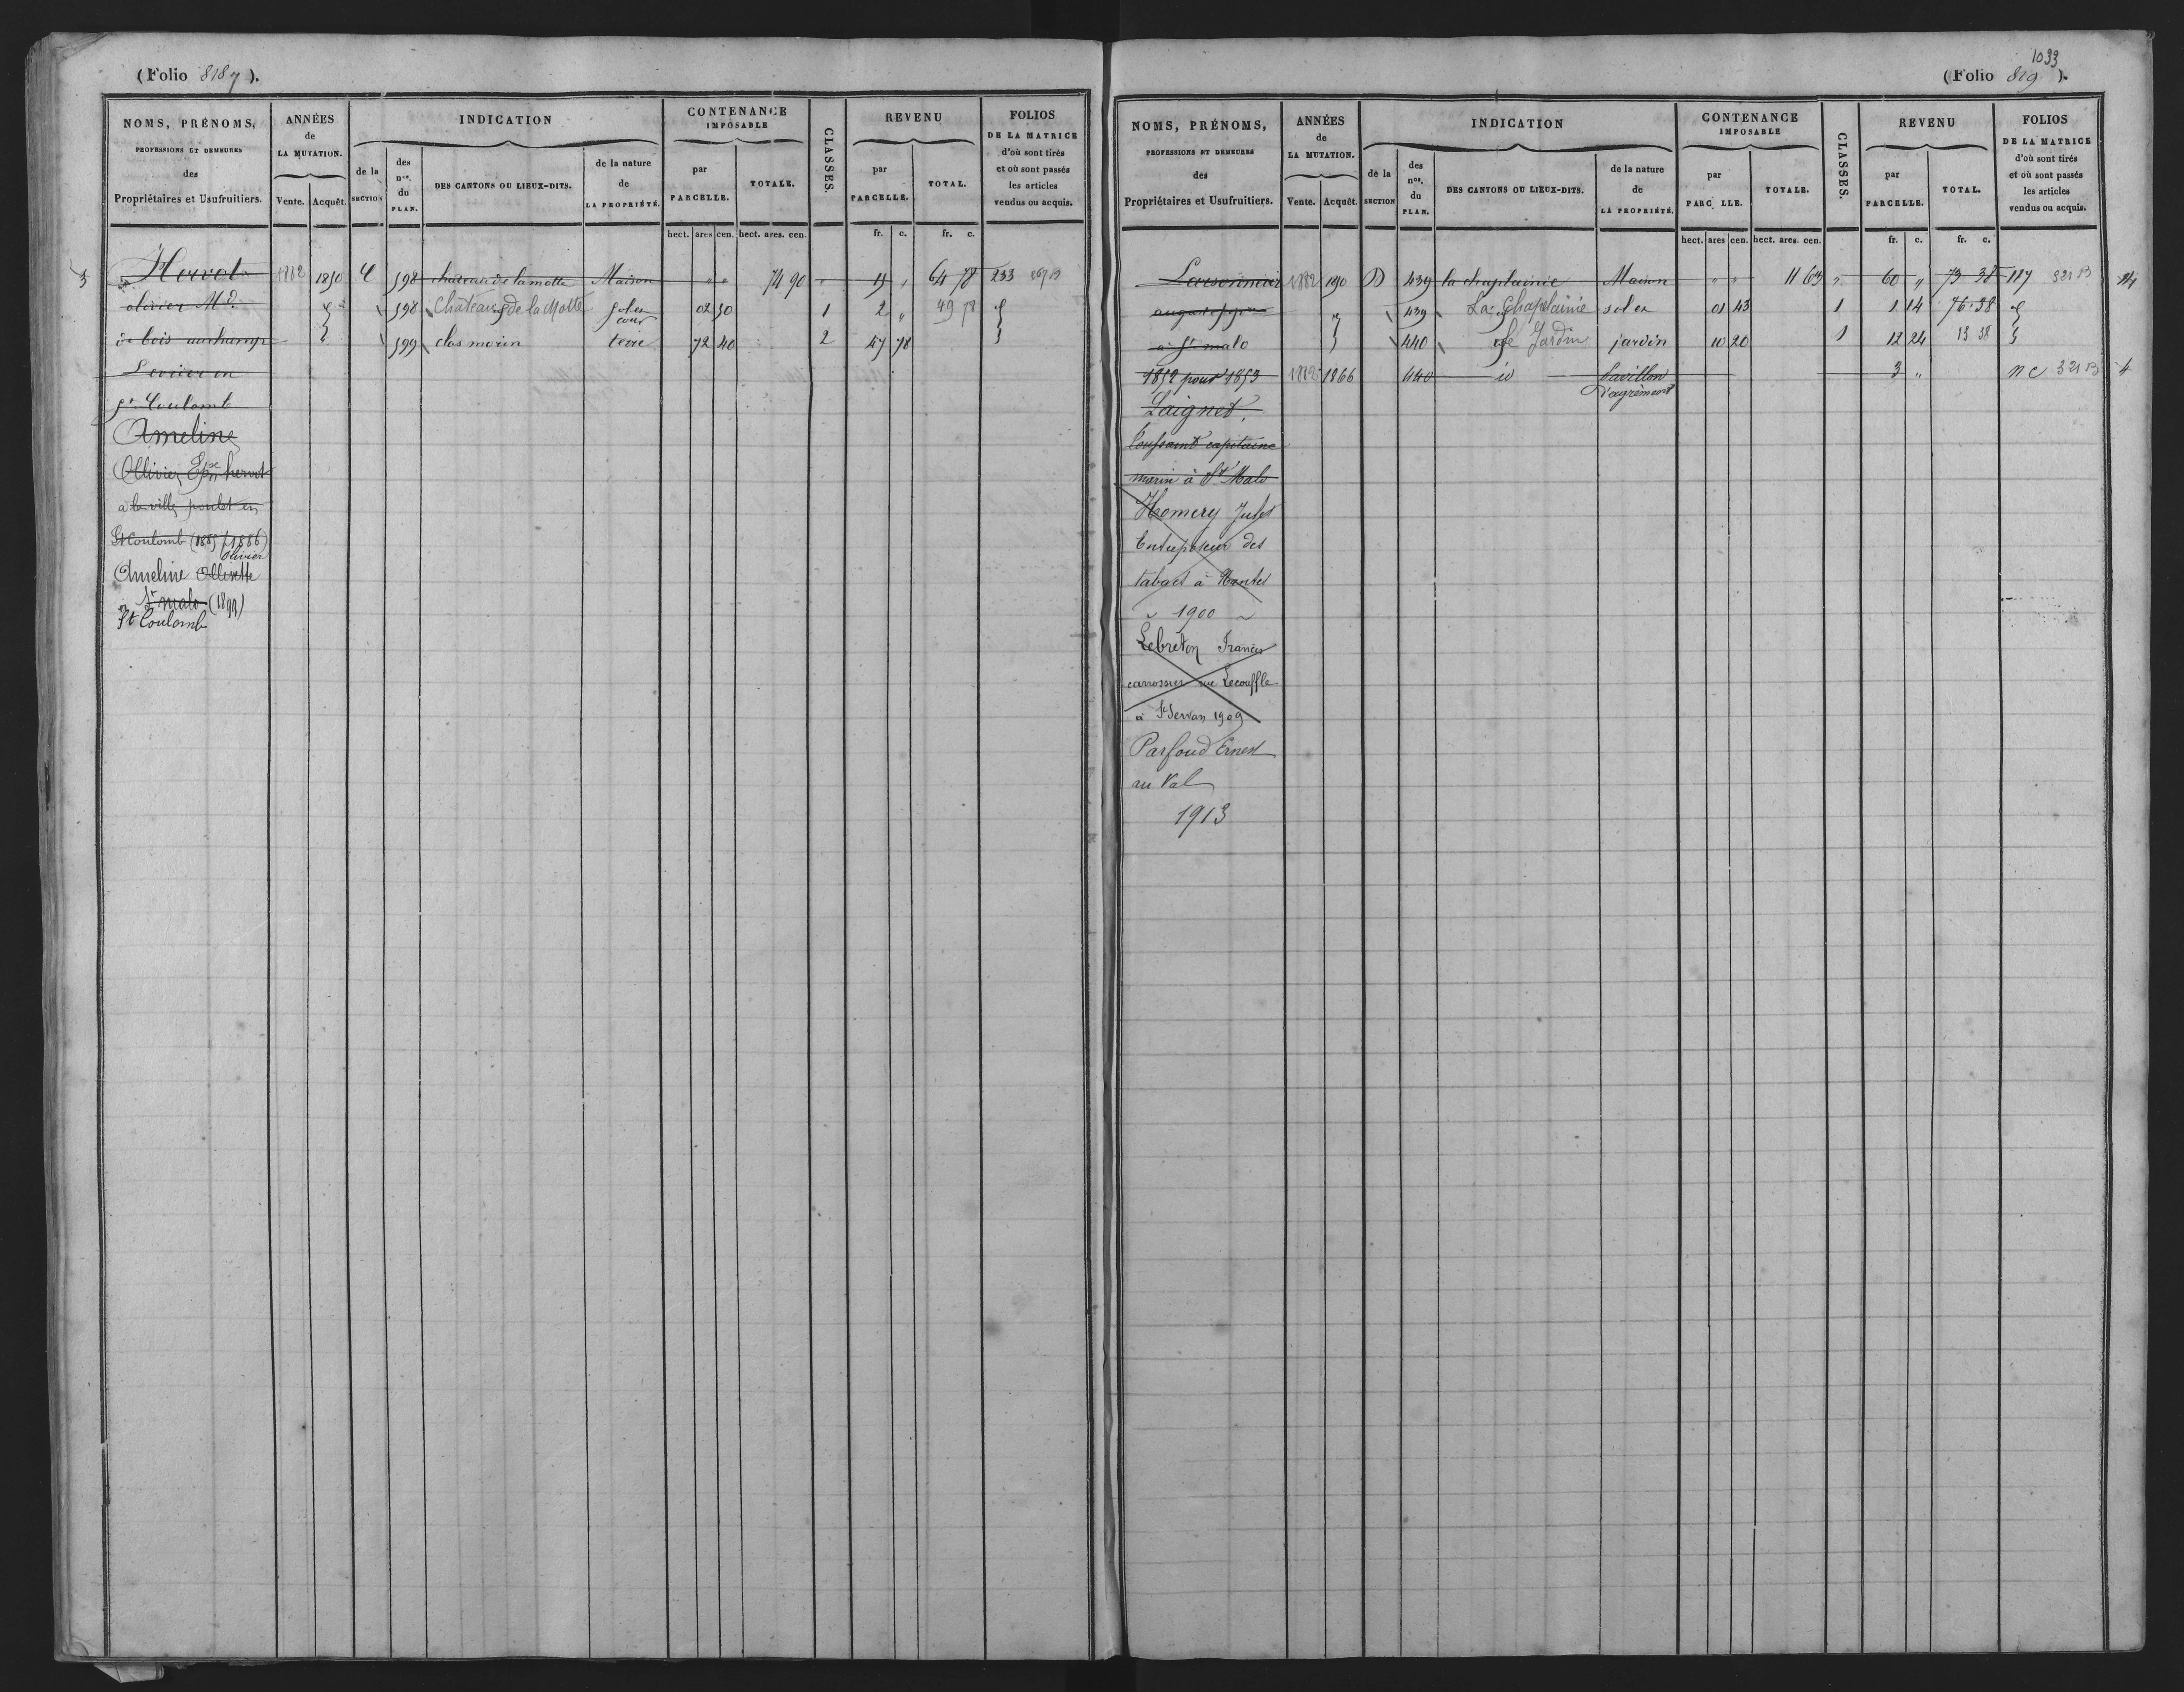 (Folio 818 ).
NOMS, PRÉNOMS,
PROFESSIONS ET DEMEURES
des
Propriétaires et Usufruitiers.
ANNÉES
de
LA MUTATION.
Vente. Acquêt.
INDICATION
de la
SECTION
des
nos.
du
PLAN.
DES CANTONS OU LIEUX-DITS.
de la nature
de
LA PROPRIÉTÉ.
CONTENANCE
IMPOSABLE
par
PARCELLE.
TOTALE.
CLASSES.
REVENU
par
PARCELLE.
TOTAL.
FOLIOS
DE LA MATRICE
d'où sont tirés
et où sont passés
les articles
vendus ou acquis.
hect. ares cen. hect. ares. cen. fr. c. fr. c.
Hervot 1882 1850 598 chateau de la motte Maison " " 74 90 " 15 " 64 78 233
olivier Md 598 Chateau de la Motte sol et cour 02 50 1 2 " 49 78
599 clos morin terre 72 40 2 47 78
Levrier en
St Coulomb
Ameline
Ollivier Epse hervot
à la ville poulet en
St Coulomb (1885 / 1886)
Olivier
Ameline
St malo
St Coulomb
1033
(Folio 819 ).
NOMS, PRÉNOMS,
PROFESSIONS ET DEMEURES
des
Propriétaires et Usufruitiers.
ANNÉES
de
LA MUTATION.
Vente. Acquêt.
INDICATION
de la
SECTION
des
nos.
du
PLAN.
DES CANTONS OU LIEUX-DITS.
de la nature
de
LA PROPRIÉTÉ.
CONTENANCE
IMPOSABLE
par
PARC LLE.
TOTALE.
CLASSES.
REVENU
par
PARCELLE.
TOTAL.
FOLIOS
DE LA MATRICE
d'où sont tirés
et où sont passés
les articles
vendus ou acquis.
hect. ares cen. hect. ares. cen. fr. c. fr. c.
1882 1850 D 439 la chaplainie Maison " " 11 63 " 60 " 73 38 187 321 B
439 La Chaplainie sol et 01 43 1 1 14 76 38
à St malo 440 le Jardin jardin 10 20 1 12 24 13 38
1852 pour 1853 1882 1866 440 id Pavillon 3 " n c 321 B
d'agrément
Laignet,
Toussaint capitaine
marin à St Malo
Hemery Jules
Entreposeur des
tabacs à Nantes
1900
Lebreton Francis
carrossier rue Lecouffle
à St Servan 1909
Parfoud Ernest
au Val
1913